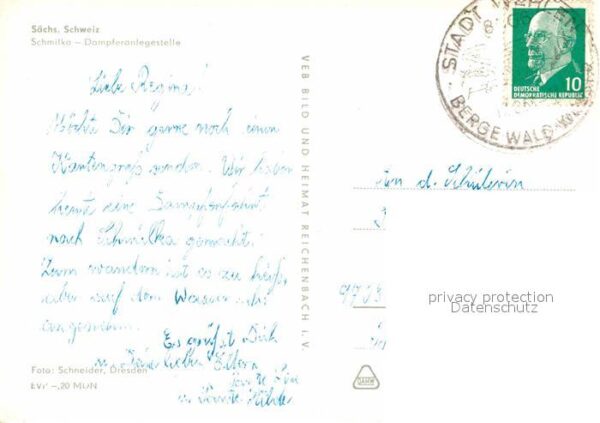 Sächs. Schweiz
Schmilka – Dampferanlegestelle
Liebe Regina!
Möchte Dir gerne noch einen
Kartengruß senden. Wir haben
heute eine Dampferfahrt
nach Schmilka gemacht.
Zum wandern ist es zu heiß,
aber auf dem Wasser sehr
angenehm.
Es grüßt Dich
u. Deine lieben Eltern
u. Tante Hilde
Foto: Schneider, Dresden
EVP –,20 MDN
VEB BILD UND HEIMAT REICHENBACH i. V.
STADT
BERGE WALD
DEUTSCHE
DEMOKRATISCHE REPUBLIK
10
An d. Schülerin
privacy protection
Datenschutz